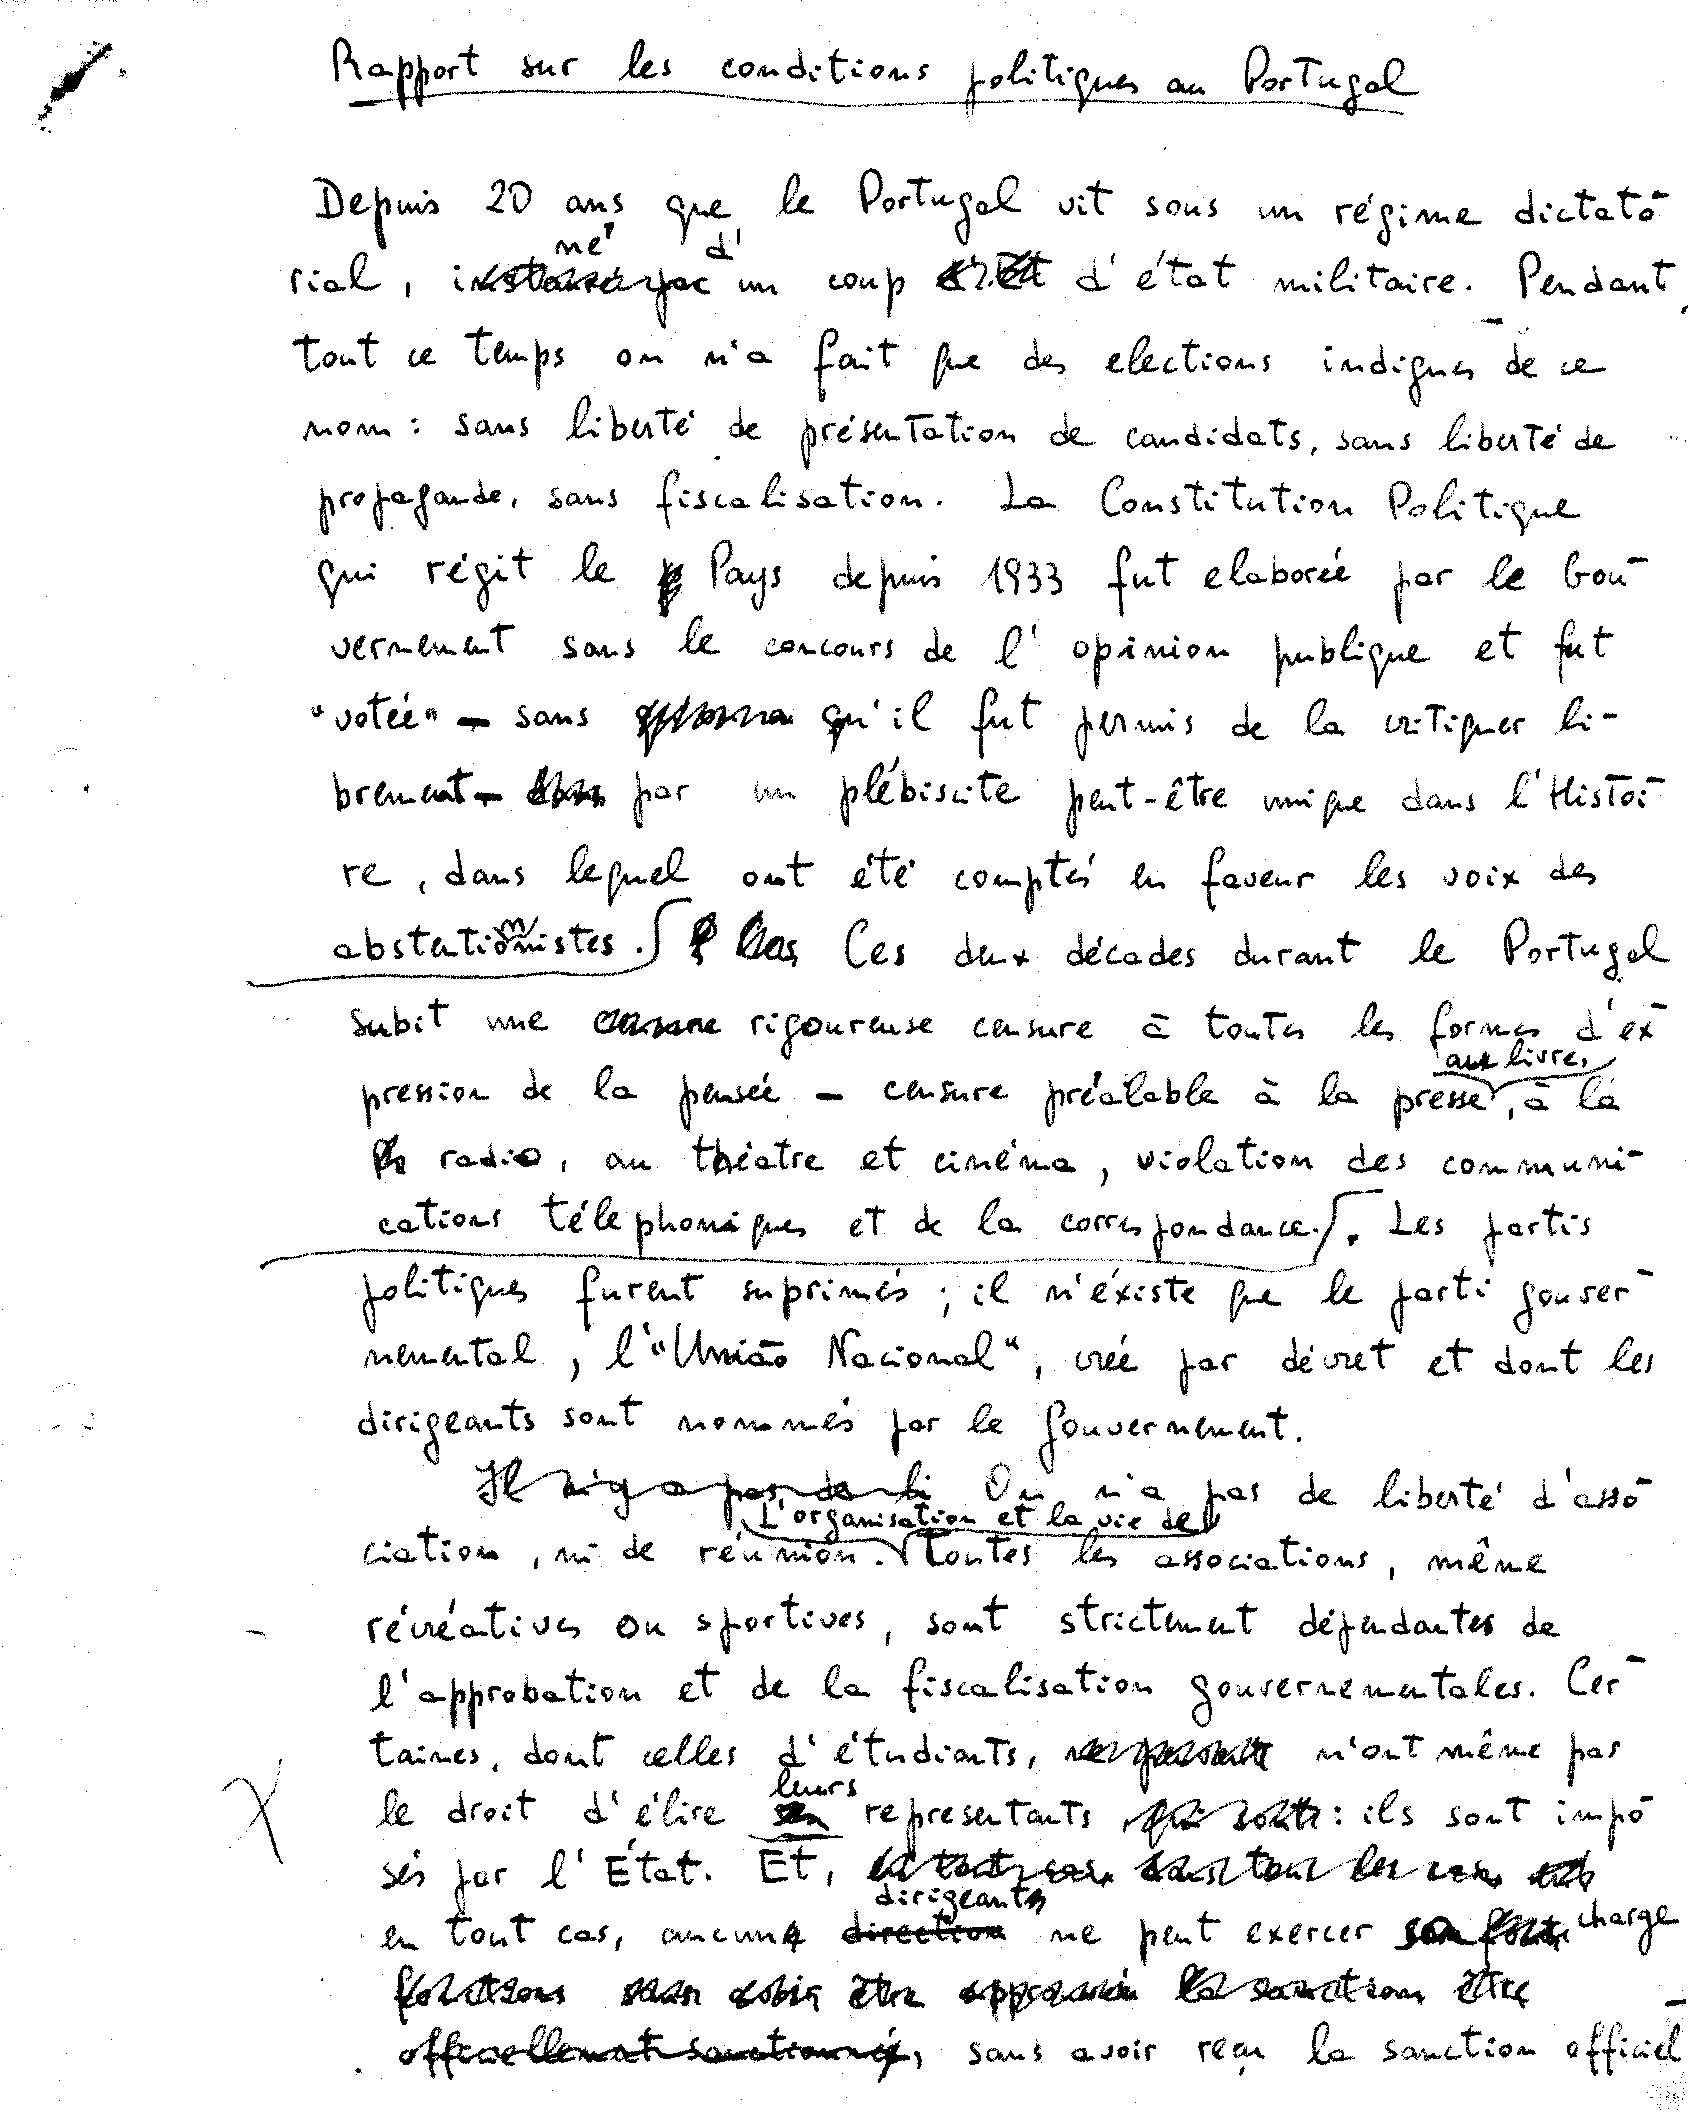 Rapport sur les conditions politiques au Portugal
Depuis 20 ans que le Portugal vit sous un régime dictato-
né d'
rial, un coup d'état militaire. Pendant
tout ce temps on n'a fait que des elections indignes de ce
nom: sans liberté de présentation de candidats, sans liberté de
propagande, sans fiscalisation. La Constitution Politique
qui régit le Pays depuis 1933 fut elaboreé par le Gou-
vernement sans le concours de l'opinion publique et fut
"voteé" - sans qu'il fut permis de la critiquer li-
brement - par un plébiscite peut-être unique dans l'Histoi-
re, dans lequel ont été comptés en faveur les voix des
abstentionnistes. Ces deux décades durant le Portugal
subit une rigoureuse censure à toutes les formes d'ex-
aux livres,
pression de la penseé - censure préalable à la presse, à la
radio, au théatre et cinéma, violation des communi-
cations téléphoniques et de la correspondance. Les partis
politiques furent suprimés; il n'éxiste que le parti gouver-
nemental, l'"União Nacional", créé par décret et dont les
dirigeants sont nommés par le Gouvernement.
Il n'y a pas de li On n'a pas de liberté d'asso-
L'organisation et la vie de
ciation, ni de réunion. toutes les associations, même
récréatives ou sportives, sont strictement dépendantes de
l'approbation et de la fiscalisation gouvernementales. Cer-
taines, dont celles d'étudiants, n'ont même pas
leurs
le droit d'élire representants qui sont: ils sont impo-
sés par l'État. Et,
dirigeants
en tout cas, aucun direction ne peut exercer charge
officiellement sanctionné, sans avoir reçu la sanction officiel-